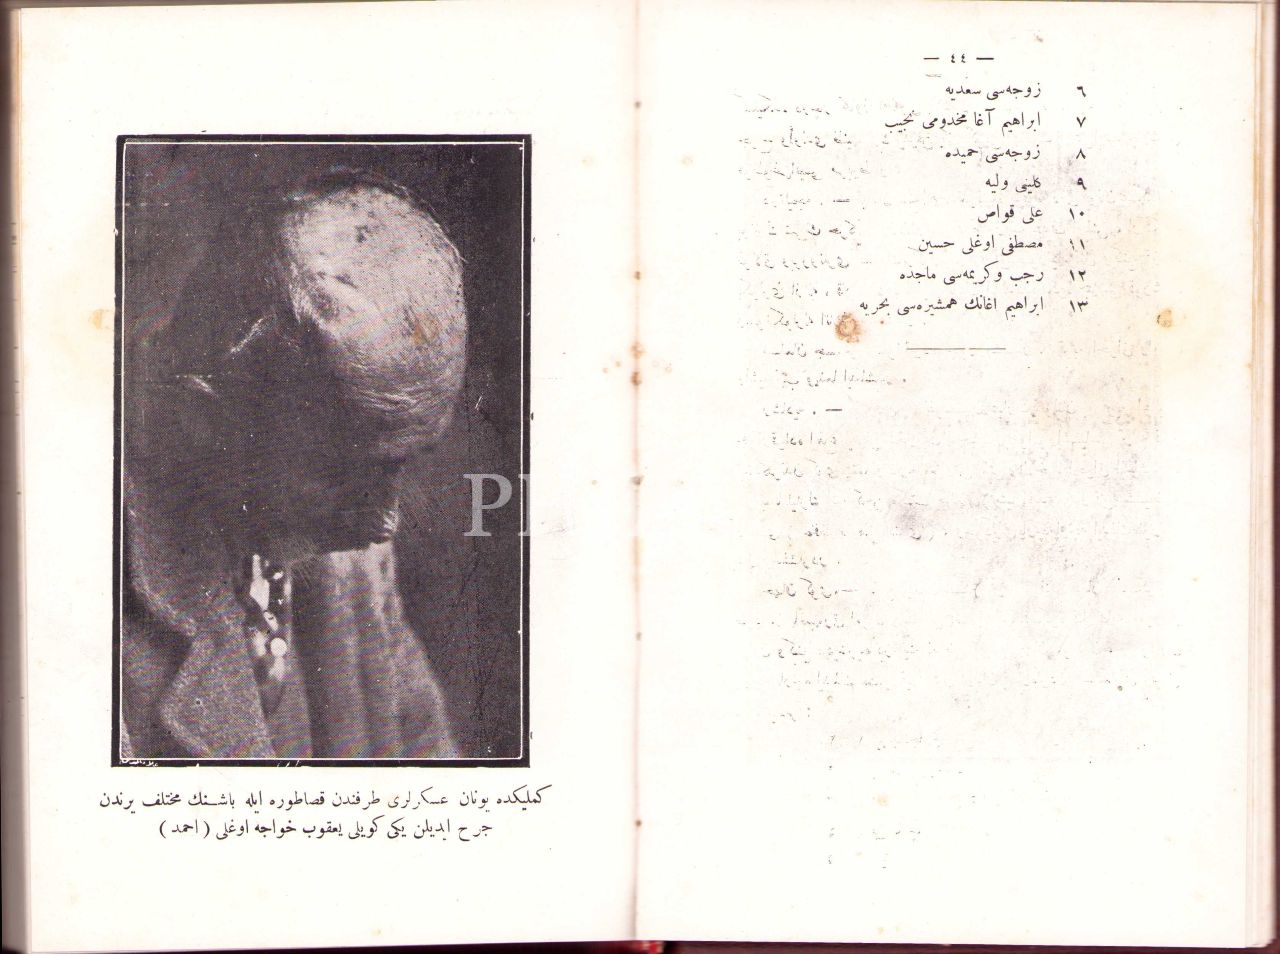 — ٤٤ —
٦ زوجه‌سی سعدیه
٧ ابراهیم آغا مخدومی نجیب
٨ زوجه‌سی حمیده
٩ كلینی ولیه
١٠ علی قواص
١١ مصطفی اوغلی حسین
١٢ رجب وكریمه‌سی ماجده
١٣ ابراهیم اغانك همشیره‌سی بحریه
كملیكده یونان عسكرلری طرفندن قصاطوره ایله باشنك مختلف یرندن
جرح ایدیلن یكی كویلی یعقوب خواجه اوغلی ( احمد )